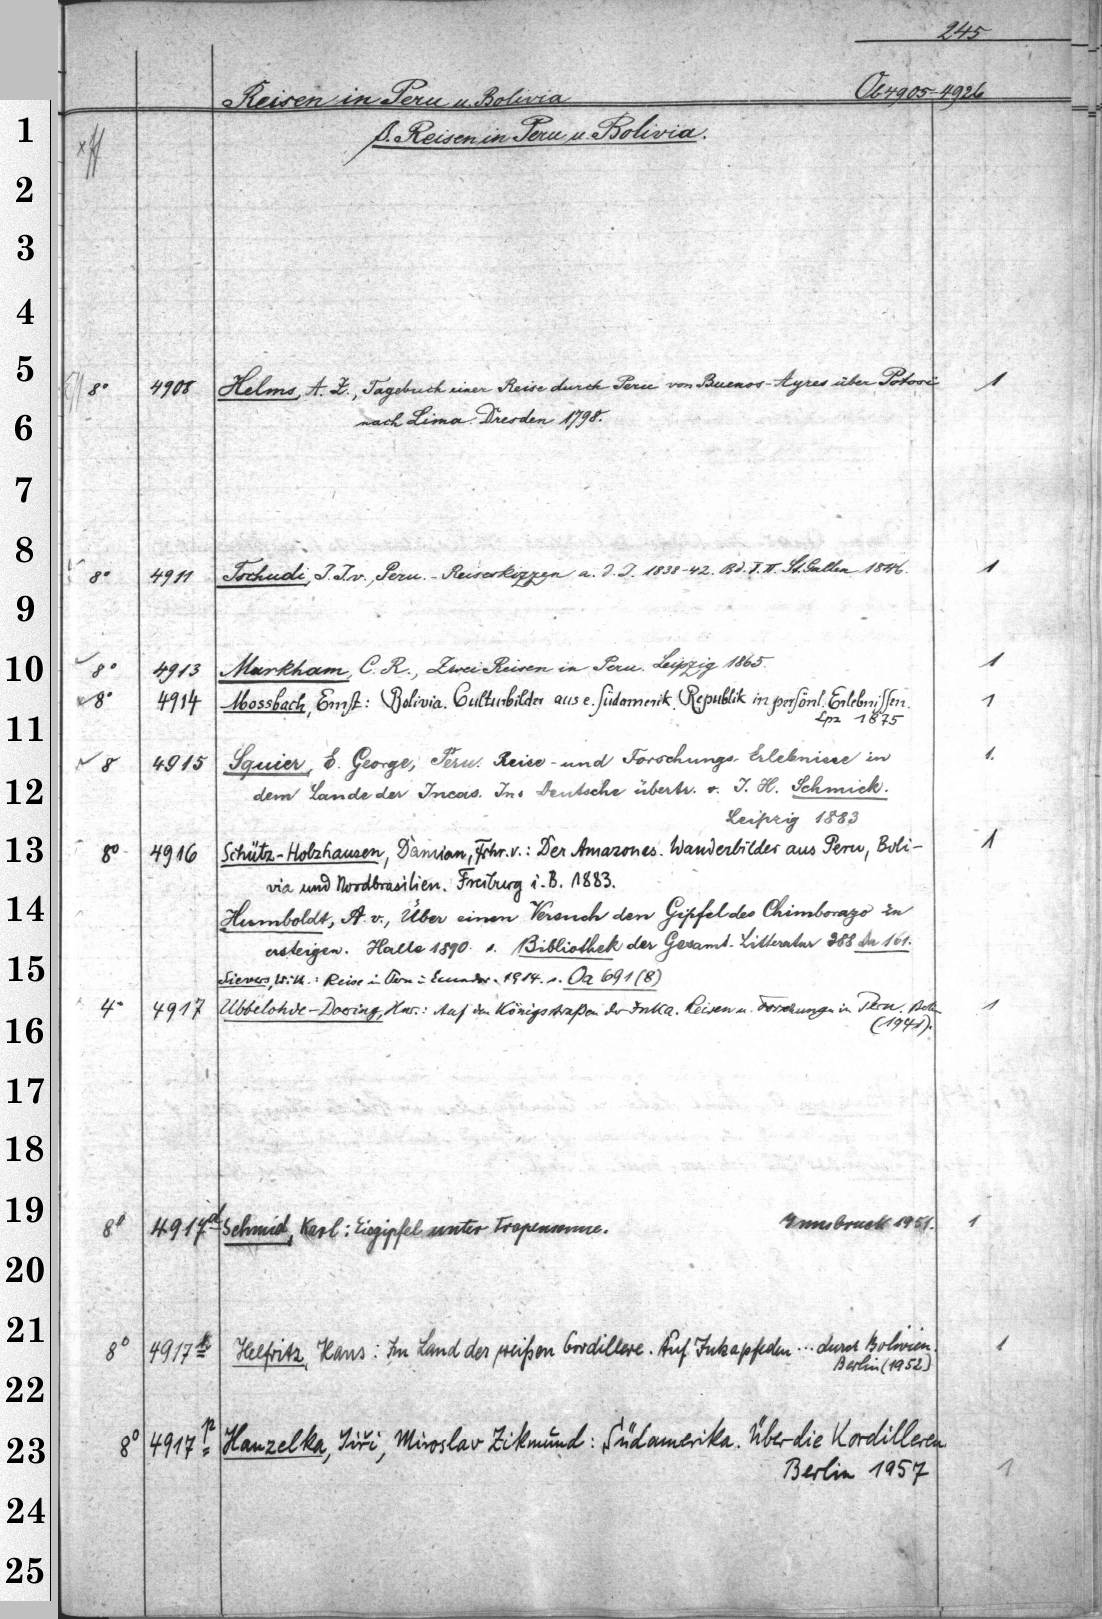 245
Reisen in Peru u. Bolivia Ob 4905-4926
β. Reisen in Peru u. Bolivia.
1
2
3
4
5
8° 4908 Helms, A. Z., Tagebuch einer Reise durch Peru von Buenos-Ayres über Potosi 1
nach Lima. Dresden 1798.
6
7
8
8° 4911 Tschudi, J. J. v., Peru. - Reiseskizzen a. d. J. 1838-42. Bd. I. II. St. Gallen 1846. 1
9
10
8° 4913 Markham, C. R., Zwei Reisen in Peru. Leipzig 1865. 1
8° 4914 Mossbach, Ernst: Bolivia. Culturbilder aus e. südamerik. Republik in persönl. Erlebnissen. 1
Lpz 1875
11
8 4915 Squier, E. George, Peru. Reise- und Forschungs-Erlebnisse in 1.
dem Lande der Incas. Ins Deutsche übertr. v. J. H. Schmick.
12
Leipzig 1883
13
8° 4916 Schütz-Holzhausen, Damian, Frhr. v.: Der Amazones. Wanderbilder aus Peru, Boli- 1
via und Nordbrasilien. Freiburg i. B. 1883.
14
Humboldt, A. v., Über einen Versuch den Gipfel des Chimborazo zu
ersteigen. Halle 1890. s. Bibliothek der Gesamt-Litteratur 388 Du 161.
15
Sievers, Wilh.: Reise in Peru u. Ecuador. 1914. s. Oa 691 (8)
4° 4917 Ubbelohde-Doering, Hnr.: Auf den Königsstraßen der Inka. Reisen u. Forschungen in Peru. Berlin 1
(1941).
16
17
18
19
8° 4917d Schmid, Karl: Eisgipfel unter Tropensonne. Innsbruck 1951. 1
20
21
8° 4917k Helfritz, Hans: Im Land der weißen Cordillere. Auf Inkapfaden ... durch Bolivien. 1
Berlin (1952)
22
23
8° 4917p Hanzelka, Jiří, Miroslav Zikmund: Südamerika. Über die Kordilleren
Berlin 1957 1
24
25